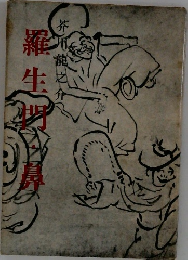 芥川龍之介
羅生門・鼻